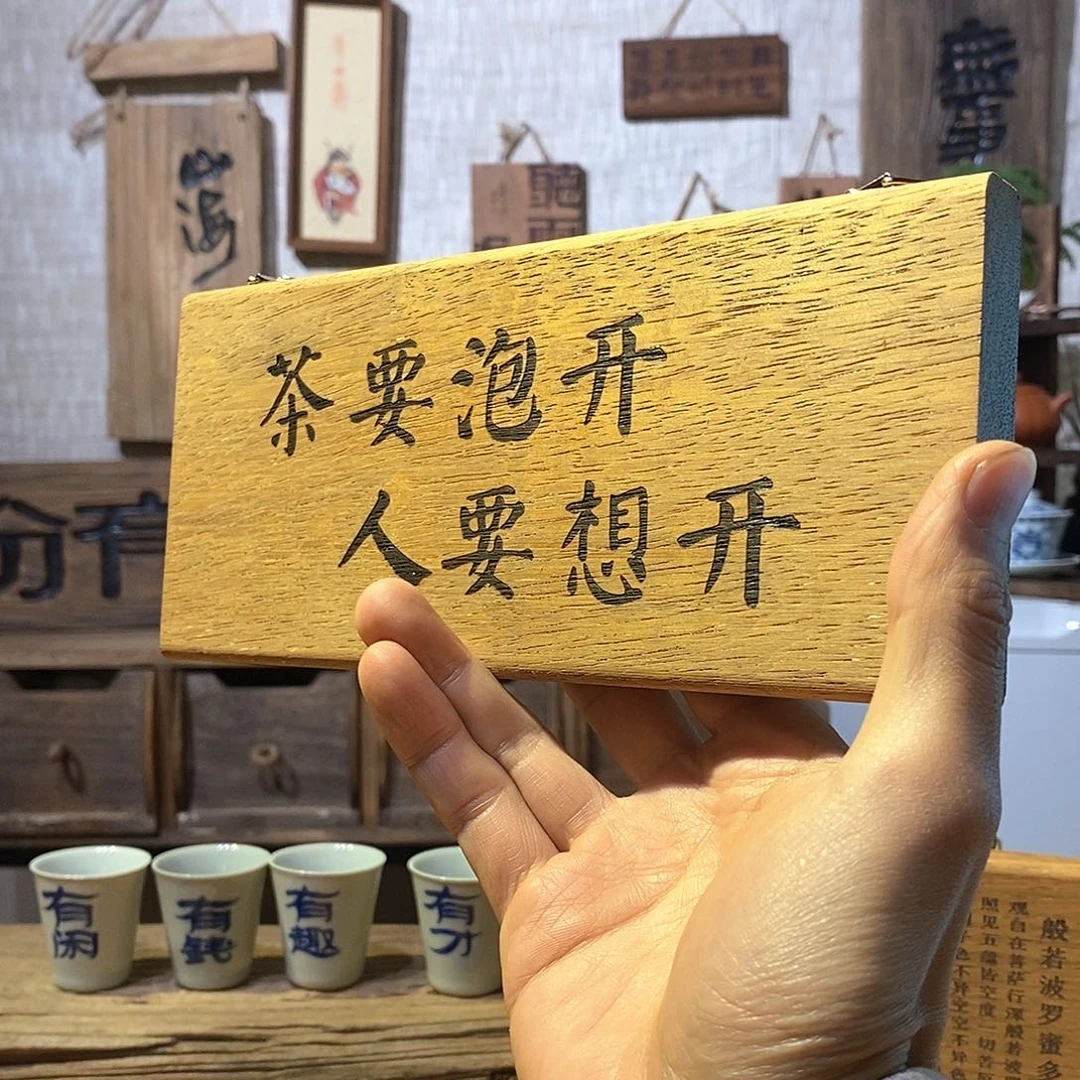 茶要泡开
人要想开
山海
無事
聽雨
有闲
有錢
有趣
有才
般若波罗蜜多
观自在菩萨行深般若波
照见五蕴皆空度一切苦